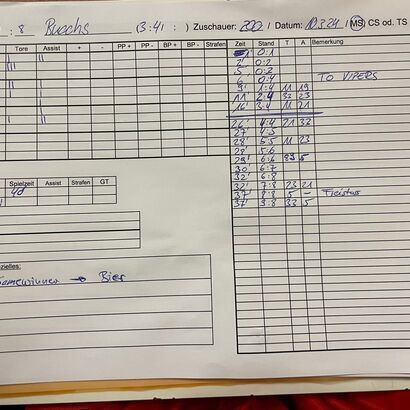 : 8 Buochs (3:4) : ) Zuschauer: 200 / Datum: 10.3.24 / MS CS od. TS
Tore Assist + - PP + PP - BP + BP - Strafen Zeit Stand T A Bemerkung
1' 0:1
2' 0:2
5' 0:3
6' 0:4 TO VIPERS
9' 1:4 11 19
11' 2:4 32 23
16' 3:4 11 21
26' 4:4 21 32
27' 4:5
28' 5:5 11 23
28' 5:6
29' 6:6 83 5
30' 6:7
32' 6:8
Spielzeit Assist Strafen GT
32' 7:8 23 21
37' 8:8 5 - Freistoss
37' 9:8 33 5
zielles:
Gamewinner → Bier